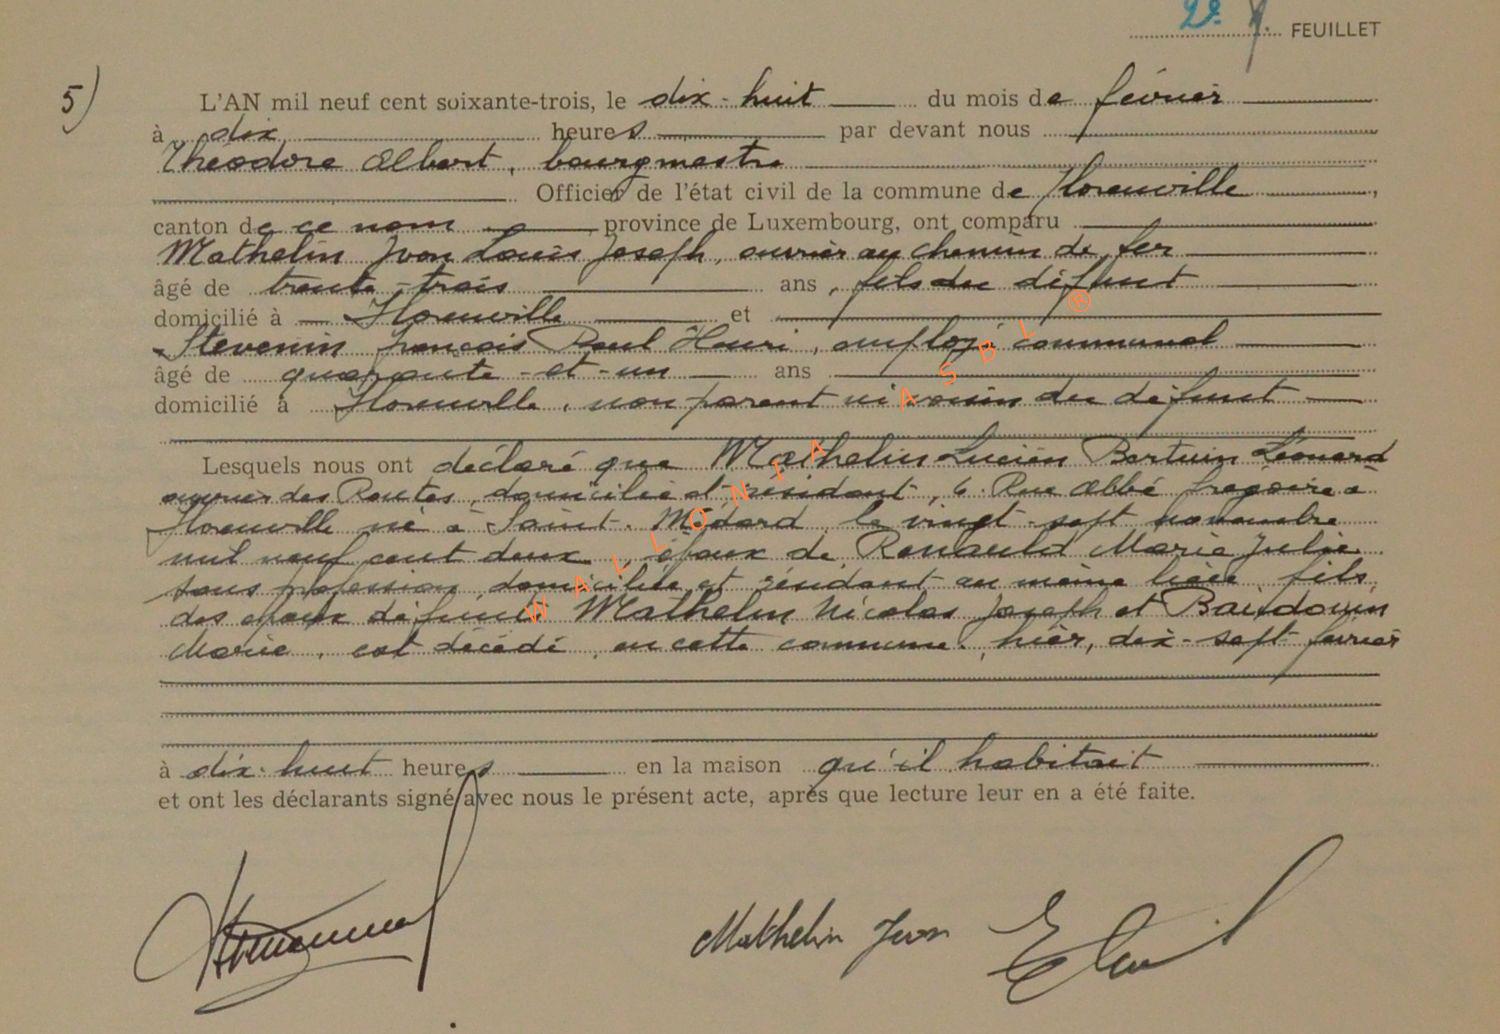 2e. f. FEUILLET
5) L'AN mil neuf cent soixante-trois, le dix-huit du mois de février
à dix heures par devant nous
Théodore Albert, bourgmestre
Officier de l'état civil de la commune de Florenville,
canton de ce nom, province de Luxembourg, ont comparu
Mathelin Yvon Louis Joseph, ouvrier au chemin de fer
âgé de trente-trois ans, fils du défunt
domicilié à Florenville et
Stevenin François Paul Henri, employé communal
âgé de quarante-et-un ans
domicilié à Florenville, non parent ni voisin du défunt
Lesquels nous ont déclaré que Mathelin Lucien Bertuin Léonard
ouvrier des Routes, domicilié et résidant, 6 Rue Abbé Fregoire à
Florenville né à Saint-Médard le vingt-sept novembre
mil neuf cent deux, époux de Renauld Marie Julie
sans profession, domiciliée et résidant au même lieu, fils
des époux défunts Mathelin Nicolas Joseph et Baudouin
Marie, est décédé en cette commune, hier, dix-sept février
à dix-huit heures en la maison qu'il habitait
et ont les déclarants signé avec nous le présent acte, après que lecture leur en a été faite.
Mathelin Yvon
WALLONIA ASBL ®